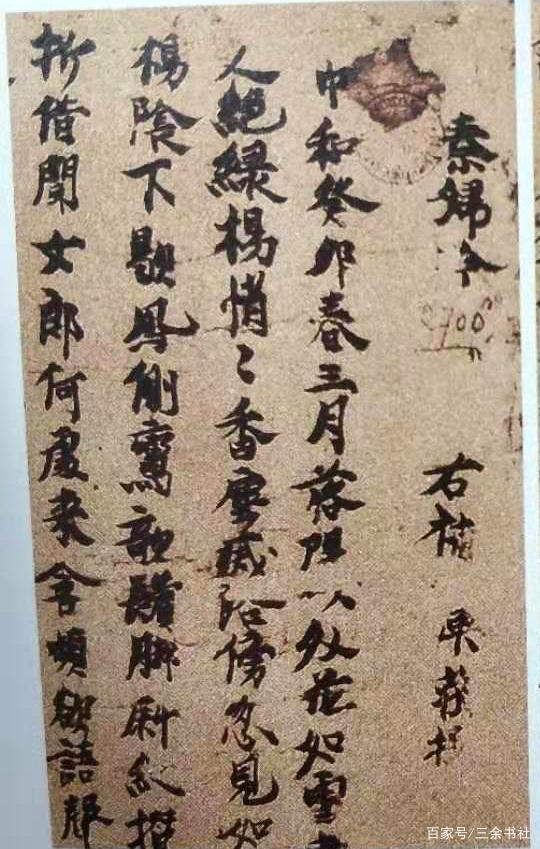 秦婦吟
2700
右補
韋莊撰
中和癸卯春三月落陽外花如雪
人絕緑楊悄〻香塵滅路傍忽見如
楊陰下歇鳳側鸞欹鬢脚斜紅攢
折借問女郎何處來含嚬欲語聲
百家号/三余书社